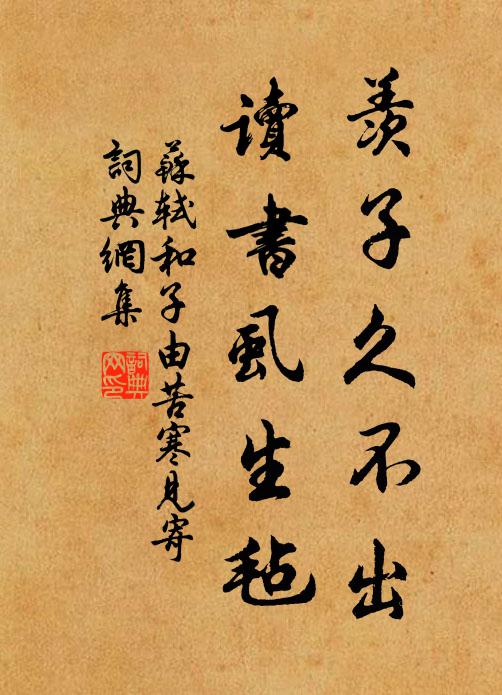 羨子久不出
讀書虱生氈
蘇軾和子由苦寒見寄
詞典網集
詞典網印